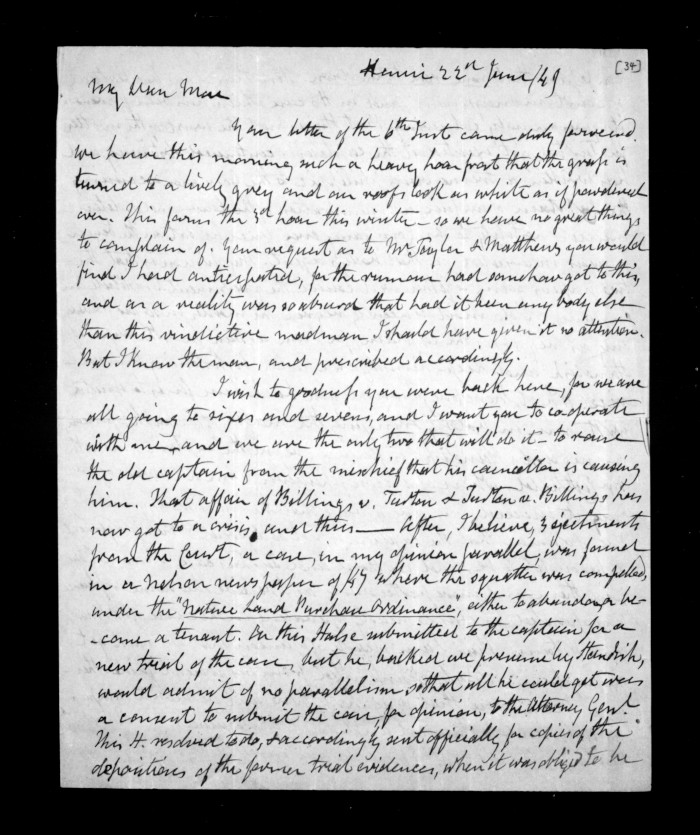 [34]
Henui 22nd June/49
My Dear Mac
Your letter of the 6th Inst came duly forward.
We have this morning such a heavy hoar frost that the grass is
turned to a lively grey and our roofs look as white as if powdered
over. This forms the 3rd hoar this winter – so we have no great things
to complain of. Your request as to Mr. Taylor & Matthews you would
find I had anticipated, for the rumour had somehow got to this,
and as a reality was so absurd that had it been any body else
than this vindictive madman, I should have given it no attention.
But I know the man, and prescribed accordingly.
I wish to goodness you were back here, for we are
all going to sixes and sevens, and I want you to co-operate
with me, and we are the only two that will do it – to rouse
the old captain from the mischief that his councillor is causing
him. That affair of Billings v. Turton & Turton v. Billings has
now got to a crisis, and this — After, I believe, 3 ejectments
from the Court, a case, in my opinion parallel, was found
in a Nelson newspaper of /47 where the squatter was compelled,
under the "Native Land Purchase Ordinance", either to abandon or be-
-come a tenant. On this Halse submitted to the captain for a
new trial of the case, but he, backed we presume by Standish,
would admit of no parallelism, so that all he could get was
a consent to submit the case, for opinion, to the Attorney Genl.
This H. resolved to do, & accordingly sent officially for copies of the
depositions of the former trial evidences, when it was obliged to be